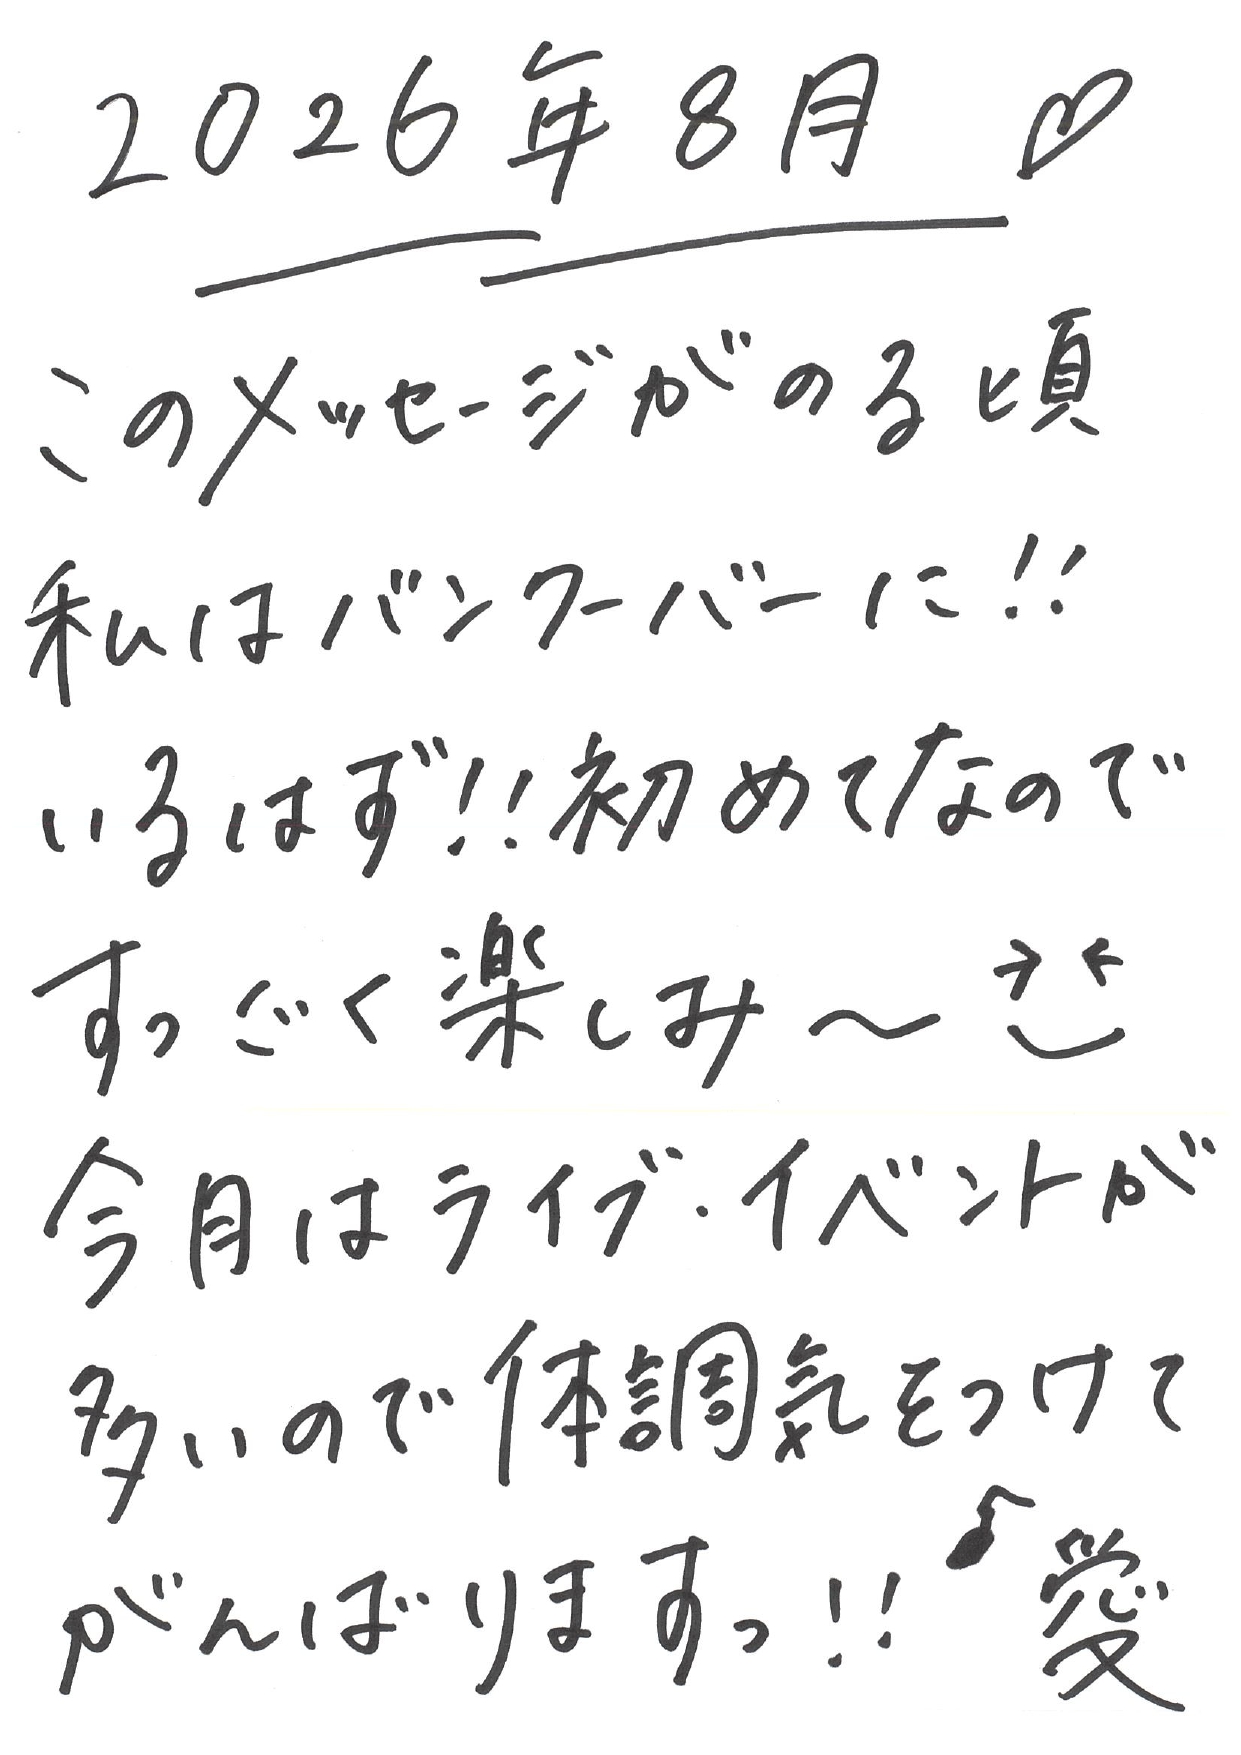 2026年8月♡
このメッセージがのる頃
私はバンクーバーに!!
いるはず!!初めてなので
すっごく楽しみ〜
今月はライブ・イベントが
多いので体調気をつけて
がんばりますっ!!♪愛